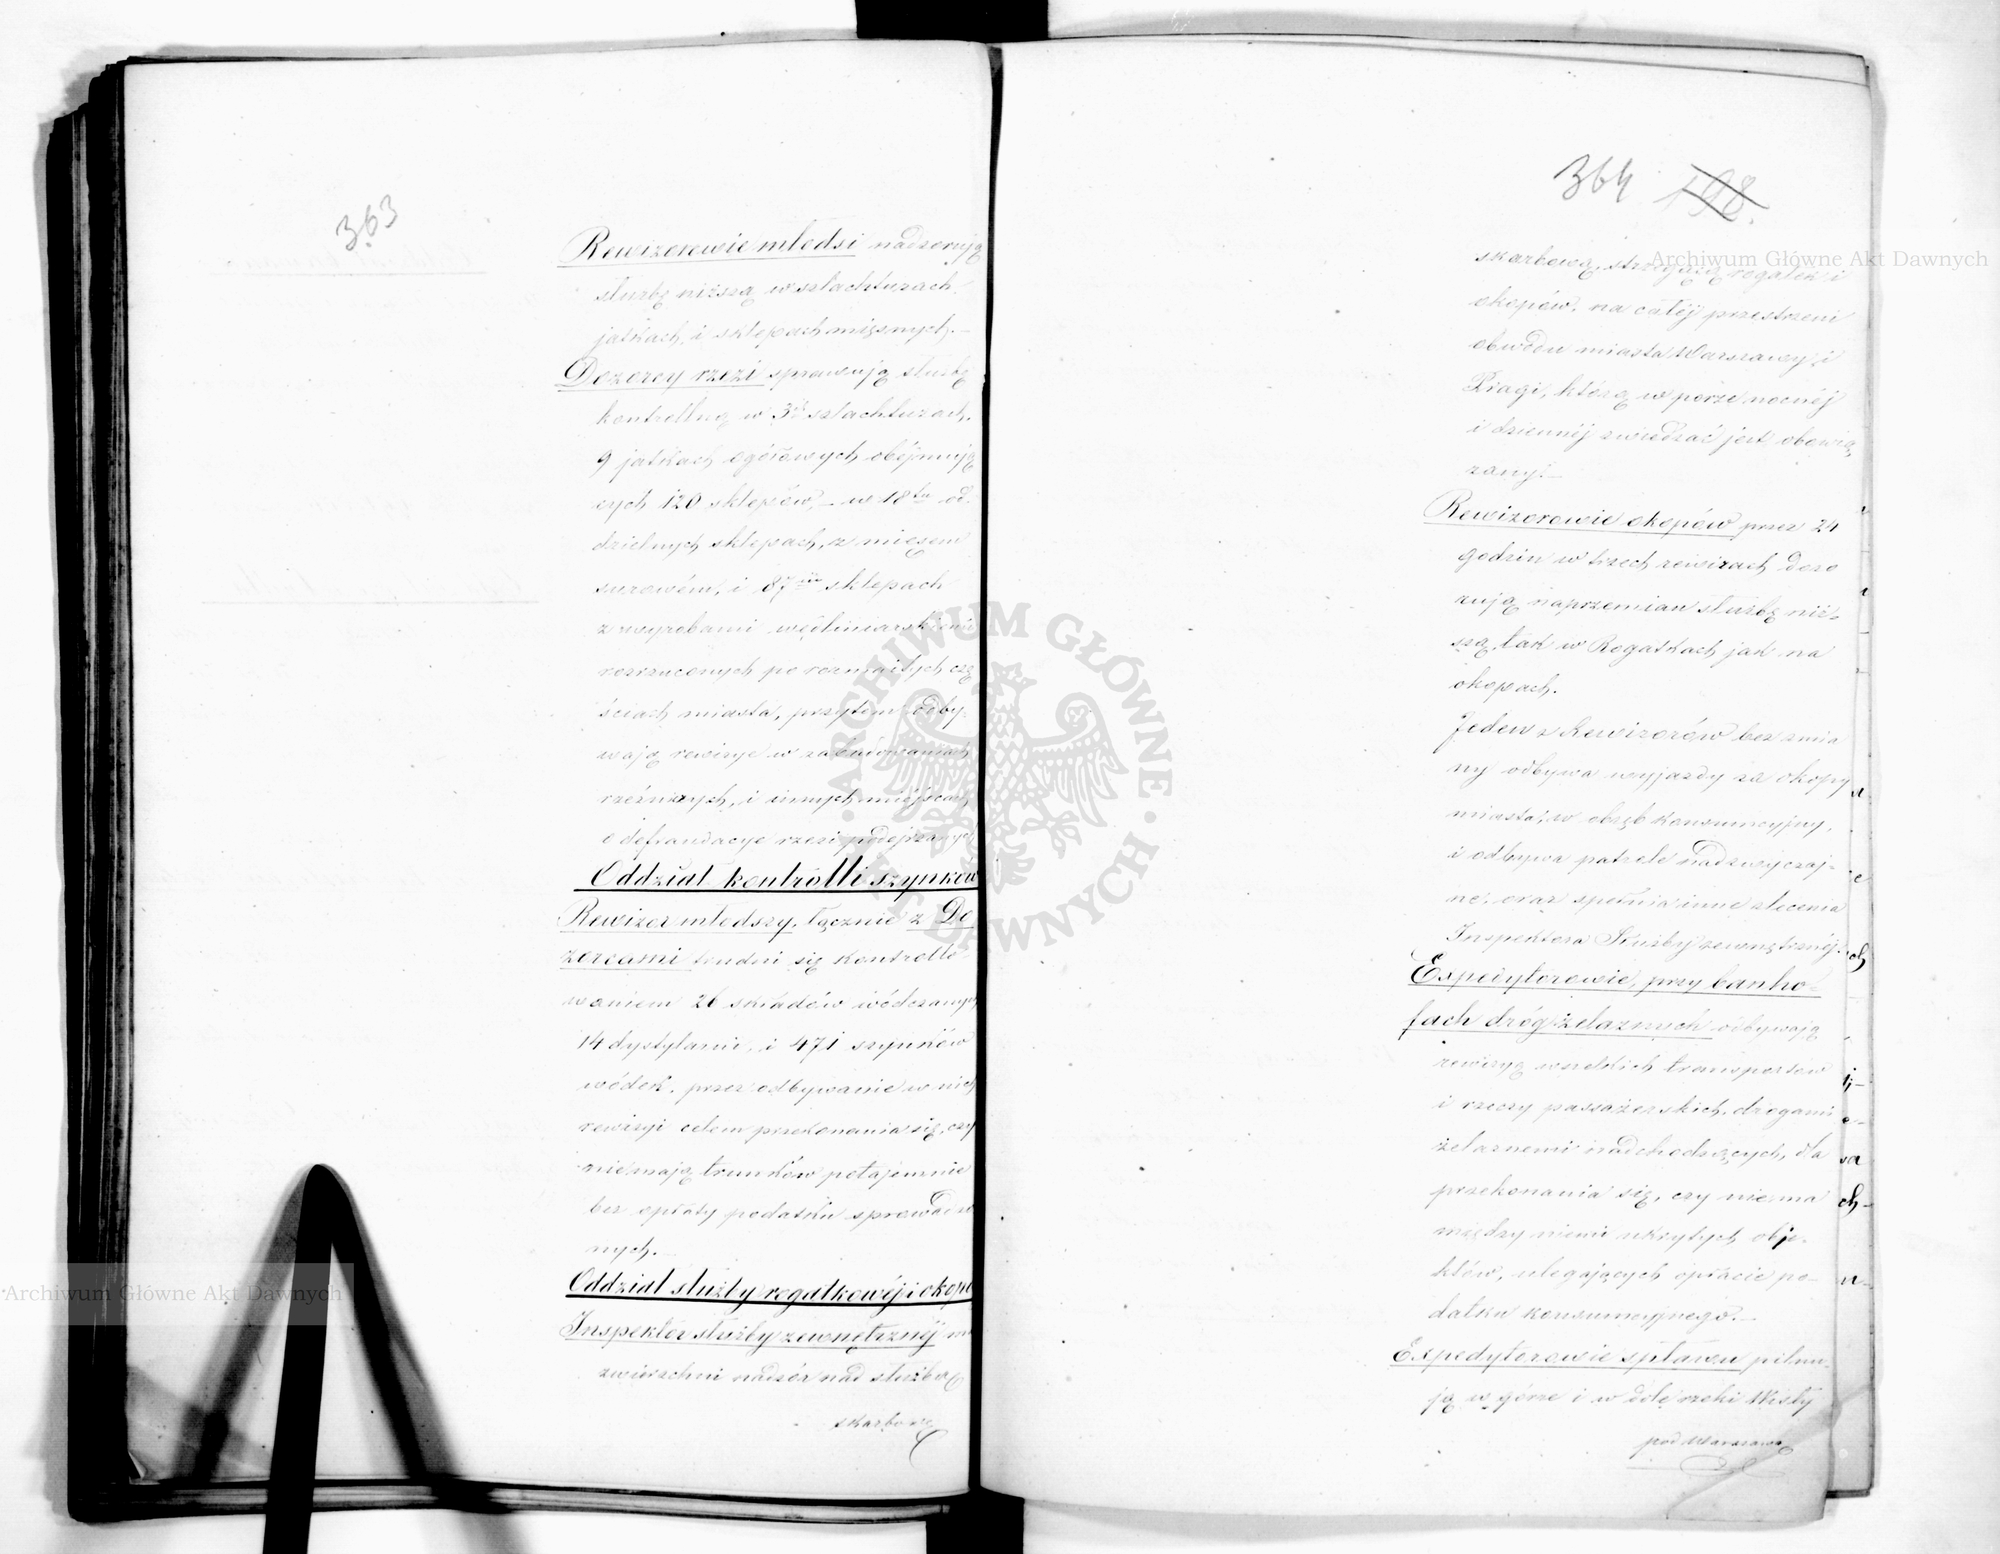 363
Rewizorowie młodsi nadzorują
służbę niższą w szlachtuzach,
jatkach, i sklepach mięsnych.—
Dozorcy rzezi sprawują służbę
kontrollną w 3ch szlachtuzach,
9 jatkach ogółowych obéjmują
cych 120 sklepów,— w 18tu od
dzielnych sklepach, z mięsem
surowém, i 87miu sklepach
z wyrobami wędliniarskiemi
rozrzuconych po rozmaitych czę
ściach miasta, przytem odby-
wają rewizye w zabudowaniach
rzeźniczych, i innych miéjscach
o defraudacye rzezi podejrzanych
Oddział kontrolli szynków
Rewizor młodszy, łącznie z Do
zorcami trudni się kontrollo
waniem 26 składów wódczanych
14 dystylarni, i 471 szynków
wódek, przez odbywanie w nich
rewizyi celem przekonania się, czy
nie mają trunków potajemnie
bez opłaty podatku sprowadzo
nych.—
Oddział służby rogatkowéj i okopo
Inspektor służby zewnętrznéj ma
zwierzchni nadzór nad służbą
skarbową
364 198.
skarbową, strzegącą rogatek i
okopów, na całéj przestrzeni
obwodu miasta Warszawy i
Pragi, którą w porze nocnéj
i dziennéj zwiedzać jest obowią
zany.—
Rewizorowie okopów przez 24
godzin w trzech rewirach dozo
rują naprzemian służbę niż-
szą, tak w Rogatkach jak na
okopach.
Jeden z Rewizorów bez zmia
ny odbywa wyjazdy za okopy
miasta, w obręb konsumcyjny,
i odbywa patrole nadzwyczaj-
ne, oraz spełnia inne zlecenia
Inspektora Służby zewnętrznéj.
Expedytorowie, przy banho-
fach dróg żelaznych odbywają
rewizyę wszelkich transportów
i rzeczy passażerskich, drogami
żelaznemi nadchodzących, dla
przekonania się, czy nie ma
między niemi ukrytych obje-
któw, ulegających opłacie po-
datku konsumcyjnego.—
Expedytorowie spławu pilnu-
ją w górze i w dole rzeki Wisły
pod Warszawą
Archiwum Główne Akt Dawnych
Archiwum Główne Akt Dawnych
ARCHIWUM GŁÓWNE · AKT DAWNYCH ·